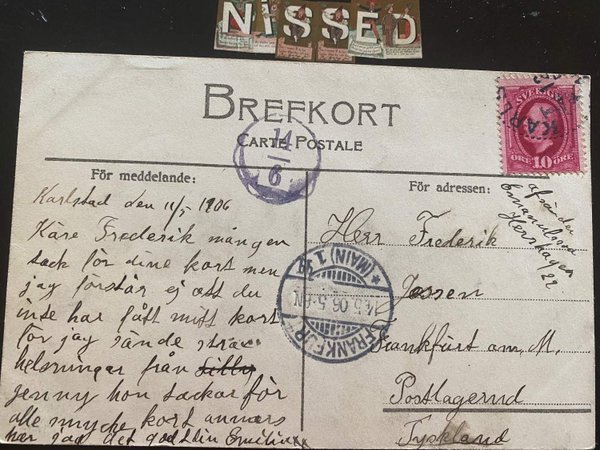 NISSED
BREFKORT
CARTE POSTALE
14
6
SVERIGE
ÖRE 10 ÖRE
För meddelande:
För adressen:
Karlstad den 11/5 1906
Käre Frederik mången
tack för dine kort men
jag förstår ej att du
inte har fått mitt kort
för jag sände
helsningar från
jenny hon tackar för
alle myche kort annars
har jag det godt din Emilina
Herr Frederik
Jossen
Frankfurt am. M.
Postlagernd
Tyskland
FRANKFURT
(MAIN) 1
5.06.5-6N.